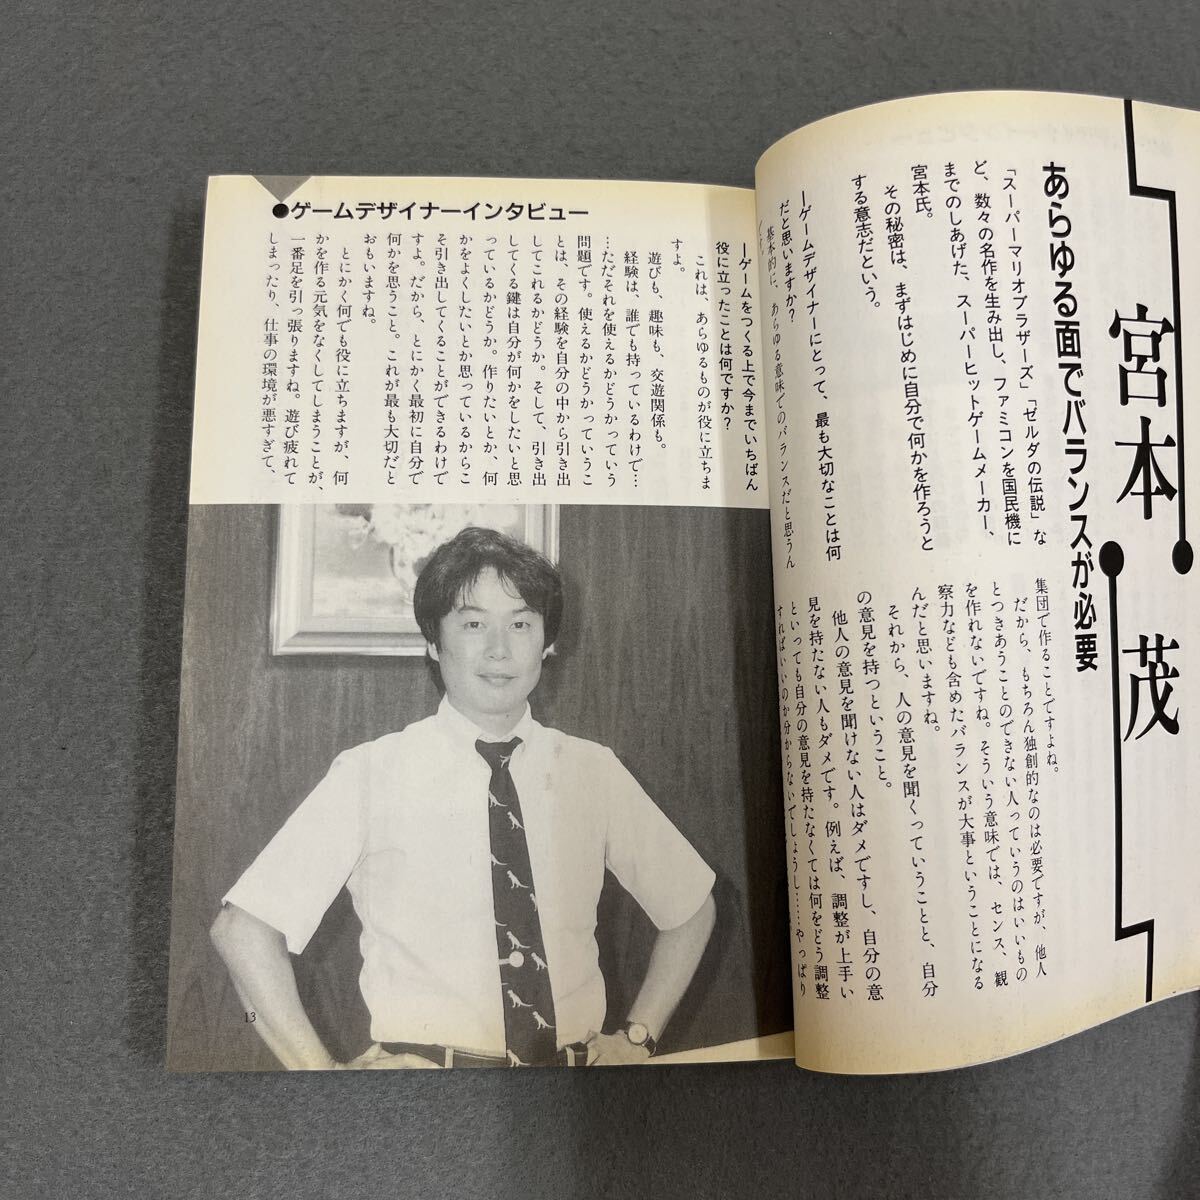 宮本 茂
あらゆる面でバランスが必要
「スーパーマリオブラザーズ」「ゼルダの伝説」な
ど、数々の名作を生み出し、ファミコンを国民機に
までのしあげた、スーパーヒットゲームメーカー、
宮本氏。
その秘密は、まずはじめに自分で何かを作ろうと
する意志だという。
―ゲームデザイナーにとって、最も大切なことは何
だと思いますか?
基本的に、あらゆる意味でのバランスだと思うん
集団で作ることですよね。
だから、もちろん独創的なのは必要ですが、他人
とつきあうことのできない人っていうのはいいもの
を作れないですね。そういう意味では、センス、観
察力なども含めたバランスが大事ということになる
んだと思いますね。
それから、人の意見を聞くっていうことと、自分
の意見を持つということ。
他人の意見を聞けない人はダメですし、自分の意
見を持たない人もダメです。例えば、調整が上手い
といっても自分の意見を持たなくては何をどう調整
すればいいのか分からないでしょうし……やっぱり
●ゲームデザイナーインタビュー
―ゲームをつくる上で今までいちばん
役に立ったことは何ですか?
これは、あらゆるものが役に立ちま
すよ。
遊びも、趣味も、交遊関係も。
経験は、誰でも持っているわけで…
…ただそれを使えるかどうかっていう
問題です。使えるかどうかっていうこ
とは、その経験を自分の中から引き出
してこれるかどうか。そして、引き出
してくる鍵は自分が何かをしたいと思
っているかどうか。作りたいとか、何
かをよくしたいとか思っているからこ
そ引き出してくることができるわけで
すよ。だから、とにかく最初に自分で
何かを思うこと。これが最も大切だと
おもいますね。
とにかく何でも役に立ちますが、何
かを作る元気をなくしてしまうことが、
一番足を引っ張りますね。遊び疲れて
しまったり、仕事の環境が悪すぎて、
13